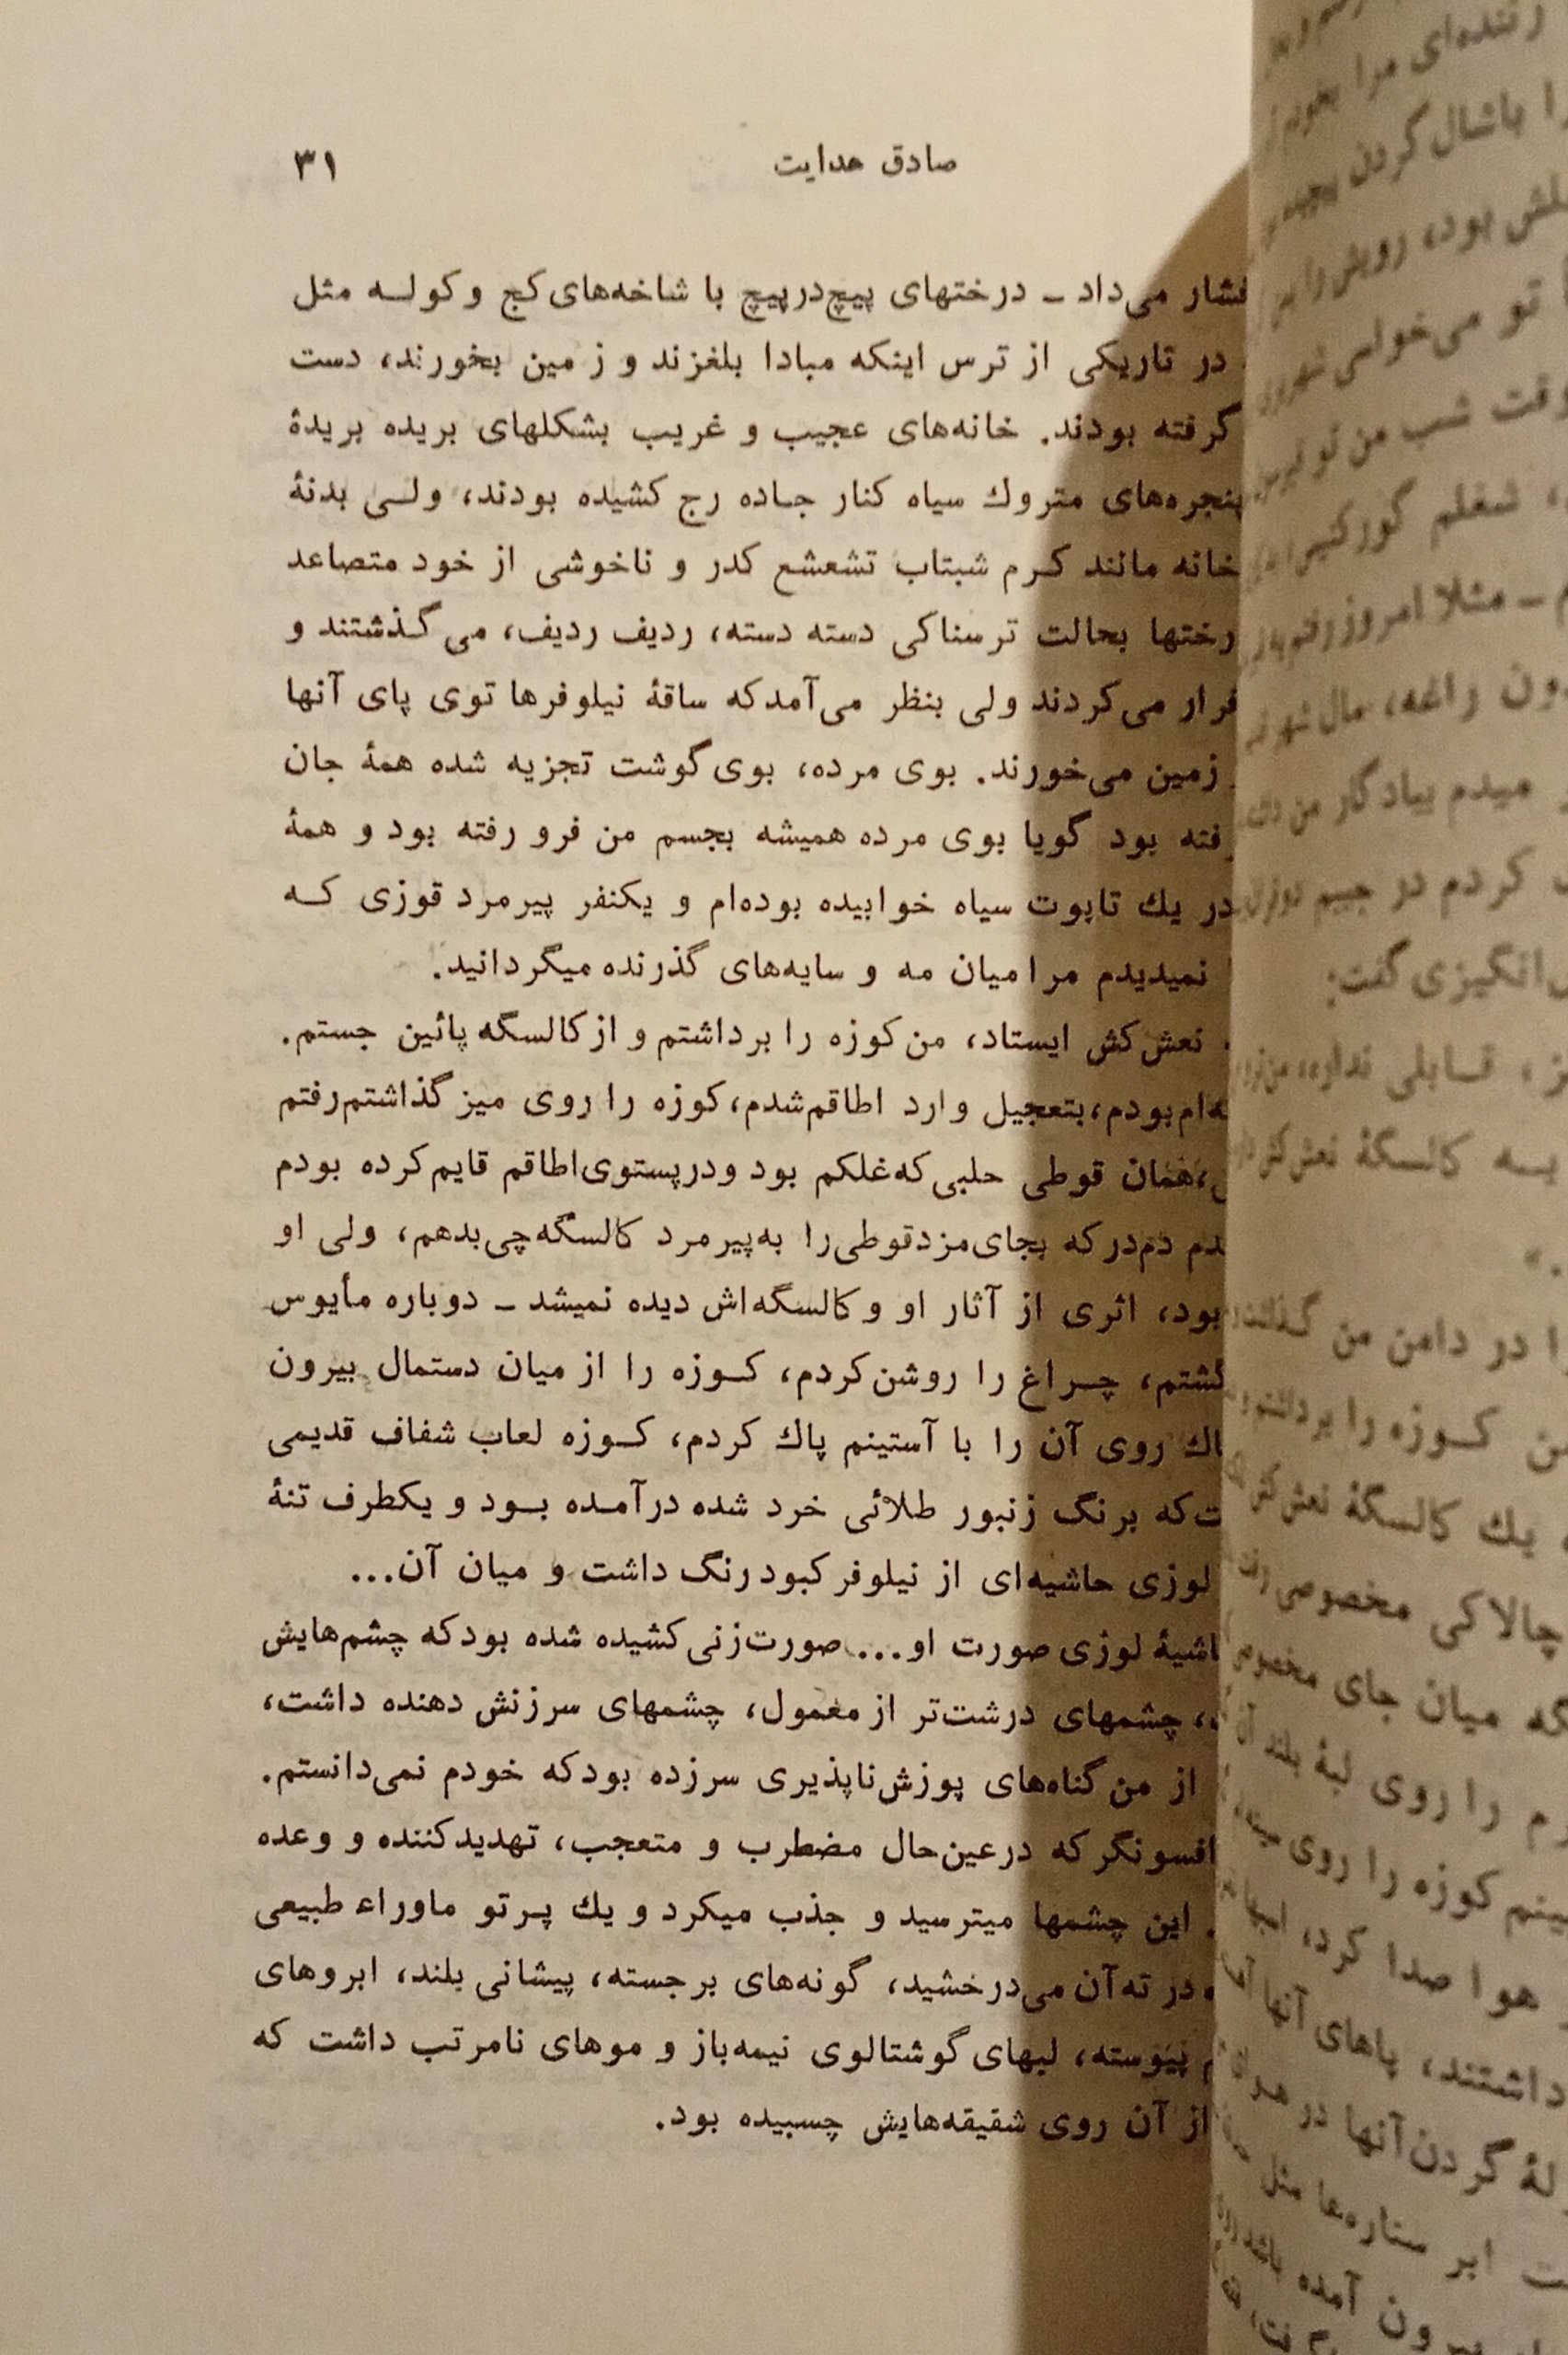 صادق هدایت ۳۱
فشار می‌داد ـ درختهای پیچ‌درپیچ با شاخه‌های کج و کولـه مثل
در تاریکی از ترس اینکه مبادا بلغزند و زمین بخورند، دست
گرفته بودند. خانه‌های عجیب و غریب بشکلهای بریده بریدۀ
پنجره‌های متروك سیاه کنار جـاده رج کشیده بودند، ولـی بدنۀ
خانه مانند کـرم شبتاب تشعشع کدر و ناخوشی از خود متصاعد
رختها بحالت ترسناکی دسته دسته، ردیف ردیف، می‌گذشتند و
فرار می‌کردند ولی بنظر می‌آمدکه ساقۀ نیلوفرها توی پای آنها
زمین می‌خورند. بوی مرده، بوی گوشت تجزیه شده همۀ جان
فته بود گویا بوی مرده همیشه بجسم من فرو رفته بود و همۀ
در یك تابوت سیاه خوابیده بوده‌ام و یکنفر پیرمرد قوزی کـه
نمیدیدم مرا میان مه و سایه‌های گذرنده میگردانید.
نعش‌کش ایستاد، من کوزه را برداشتم و از کالسگه پائین جستم.
ه‌ام بودم، بتعجیل وارد اطاقم شدم، کوزه را روی میز گذاشتم رفتم
همان قوطی حلبی که غلکم بود ودرپستوی اطاقم قایم کرده بودم
دم دم‌درکه بجای مزدقوطی را به پیرمرد کالسگه‌چی بدهم، ولی او
بود، اثری از آثار او وکالسگه‌اش دیده نمیشد ـ دوباره مأیوس
گشتم، چـراغ را روشن کردم، کـوزه را از میان دستمال بیرون
اك روی آن را با آستینم پاك کردم، کـوزه لعاب شفاف قدیمی
ت‌که برنگ زنبور طلائی خرد شده درآمـده بـود و یکطرف تنۀ
لوزی حاشیه‌ای از نیلوفر کبود رنگ داشت و میان آن...
اشیۀ لوزی صورت او... صورت زنی کشیده شده بودکه چشم‌هایش
، چشمهای درشت‌تر از معمول، چشمهای سرزنش دهنده داشت،
از من گناه‌های پوزش‌ناپذیری سرزده بودکه خودم نمی‌دانستم.
افسونگر که درعین‌حال مضطرب و متعجب، تهدیدکننده و وعده
این چشمها میترسید و جذب میکرد و یك پـرتو ماوراء طبیعی
در ته آن می‌درخشید، گونه‌های برجسته، پیشانی بلند، ابروهای
پیوسته، لبهای گوشتالوی نیمه‌باز و موهای نامرتب داشت که
از آن روی شقیقه‌هایش چسبیده بود.
ا باشال گردن
تو می‌خواسی
وقت شب من تو
شغلم گورکنیس
ـ مثلا امروز رفتم
راغه، مال شهر
میدم بیادگار من
کردم در جیبم
انگیزی گفت:
قـابلی نداره،
بـه کالسگۀ نعش‌کش
ا در دامن من گذاشت
ن کـوزه را برداشتم
یك کالسگۀ نعش‌کش
چالاکی مخصوصی
گه میان جای مخصوص
م را روی لبۀ بلند آن
کوزه را روی
هوا صدا کرد،
داشتند، پاهای آنها
لۀ گردن آنها در هوا
ابر ستاره‌ها مثل
بیرون آمده باشد